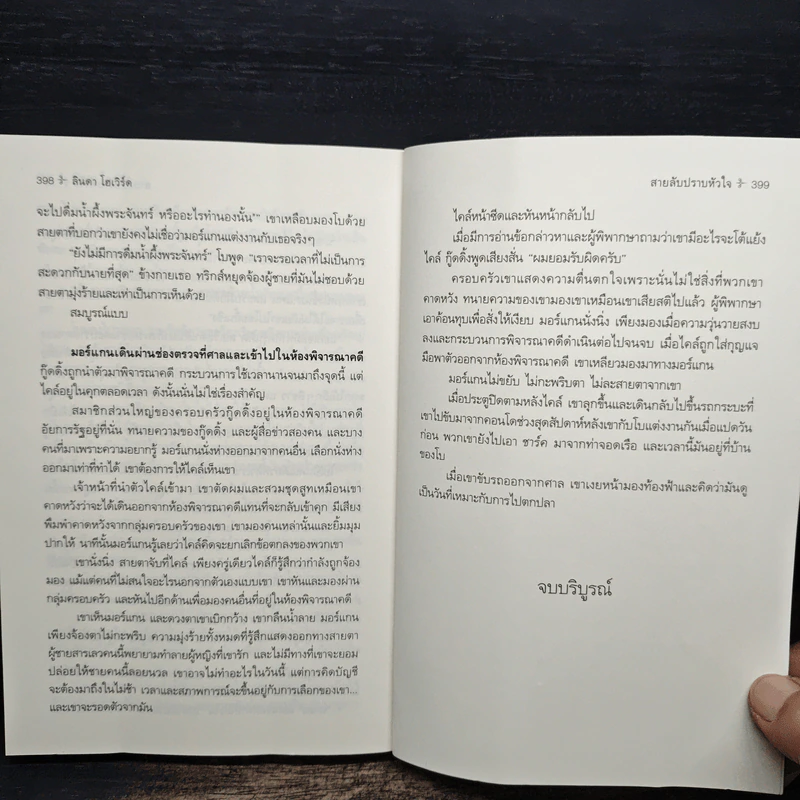 398 ลินดา โฮเวิร์ด
จะไปดื่มน้ำผึ้งพระจันทร์ หรืออะไรทำนองนั้น" เขาเหลือบมองโบด้วย
สายตาที่บอกว่าเขายังคงไม่เชื่อว่ามอร์แกนแต่งงานกับเธอจริงๆ
"ยังไม่มีการดื่มน้ำผึ้งพระจันทร์" โบพูด "เราจะรอเวลาที่ไม่เป็นการ
สะดวกกับนายที่สุด" ข้างกายเธอ ทริกส์หยุดจ้องผู้ชายที่มันไม่ชอบด้วย
สายตามุ่งร้ายและเห่าเป็นการเห็นด้วย
สมบูรณ์แบบ
มอร์แกนเดินผ่านช่องตรวจที่ศาลและเข้าไปในห้องพิจารณาคดี
กู๊ดดิ้งถูกนำตัวมาพิจารณาคดี กระบวนการใช้เวลานานจนมาถึงจุดนี้ แต่
ไคล์อยู่ในคุกตลอดเวลา ดังนั้นนั่นไม่ใช่เรื่องสำคัญ
สมาชิกส่วนใหญ่ของครอบครัวกู๊ดดิ้งอยู่ในห้องพิจารณาคดี
อัยการรัฐอยู่ที่นั่น ทนายความของกู๊ดดิ้ง และผู้สื่อข่าวสองคน และบาง
คนที่มาเพราะความอยากรู้ มอร์แกนนั่งห่างออกมาจากคนอื่น เลือกนั่งห่าง
ออกมาเท่าที่ทำได้ เขาต้องการให้ไคล์เห็นเขา
เจ้าหน้าที่นำตัวไคล์เข้ามา เขาตัดผมและสวมชุดสูทเหมือนเขา
คาดหวังว่าจะได้เดินออกจากห้องพิจารณาคดีแทนที่จะกลับเข้าคุก มีเสียง
พึมพำคาดหวังจากกลุ่มครอบครัวของเขา เขามองคนเหล่านั้นและยิ้มมุม
ปากให้ นาทีนั้นมอร์แกนรู้เลยว่าไคล์คิดจะยกเลิกข้อตกลงของพวกเขา
เขานั่งนิ่ง สายตาจับที่ไคล์ เพียงครู่เดียวไคล์ก็รู้สึกว่ากำลังถูกจ้อง
มอง แม้แต่คนที่ไม่สนใจอะไรนอกจากตัวเองแบบเขา เขาหันและมองผ่าน
กลุ่มครอบครัว และหันไปอีกด้านเพื่อมองคนอื่นที่อยู่ในห้องพิจารณาคดี
เขาเห็นมอร์แกน และดวงตาเขาเบิกกว้าง เขากลืนน้ำลาย มอร์แกน
เพียงจ้องตาไม่กะพริบ ความมุ่งร้ายทั้งหมดที่รู้สึกแสดงออกทางสายตา
ผู้ชายสารเลวคนนี้พยายามทำลายผู้หญิงที่เขารัก และไม่มีทางที่เขาจะยอม
ปล่อยให้ชายคนนี้ลอยนวล เขาอาจไม่ทำอะไรในวันนี้ แต่การคิดบัญชี
จะต้องมาถึงในไม่ช้า เวลาและสภาพการณ์จะขึ้นอยู่กับการเลือกของเขา...
และเขาจะรอดตัวจากมัน
สายลับปราบหัวใจ 399
ไคล์หน้าซีดและหันหน้ากลับไป
เมื่อมีการอ่านข้อกล่าวหาและผู้พิพากษาถามว่าเขามีอะไรจะโต้แย้ง
ไคล์ กู๊ดดิ้งพูดเสียงสั่น "ผมยอมรับผิดครับ"
ครอบครัวเขาแสดงความตื่นตกใจเพราะนั่นไม่ใช่สิ่งที่พวกเขา
คาดหวัง ทนายความของเขามองเขาเหมือนเขาเสียสติไปแล้ว ผู้พิพากษา
เอาค้อนทุบเพื่อสั่งให้เงียบ มอร์แกนนั่งนิ่ง เพียงมองเมื่อความวุ่นวายสงบ
ลงและกระบวนการพิจารณาคดีดำเนินต่อไปจนจบ เมื่อไคล์ถูกใส่กุญแจ
มือพาตัวออกจากห้องพิจารณาคดี เขาเหลียวมองมาทางมอร์แกน
มอร์แกนไม่ขยับ ไม่กะพริบตา ไม่ละสายตาจากเขา
เมื่อประตูปิดตามหลังไคล์ เขาลุกขึ้นและเดินกลับไปขึ้นรถกระบะที่
เขาไปขับมาจากคอนโดช่วงสุดสัปดาห์หลังเขากับโบแต่งงานกันเมื่อแปดวัน
ก่อน พวกเขายังไปเอา ชาร์ค มาจากท่าจอดเรือ และเวลานี้มันอยู่ที่บ้าน
ของโบ
เมื่อเขาขับรถออกจากศาล เขาเงยหน้ามองท้องฟ้าและคิดว่ามันดู
เป็นวันที่เหมาะกับการไปตกปลา
จบบริบูรณ์